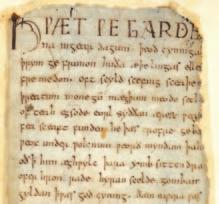 HǷÆT ǷE GARDE
na ingear dagum . þeod cyninga
þrym ge frunon huða æþelingas elle
fremedon . oft scyld scefing sceaþe
þreatum monegū mægþum meodo setla
of teah egsode eorl syððan ærest
fea sceaft funden he þæs frofre geba
ƿeox under ƿolcnum ƿeorð myndum þah
oð ꝥ him æghƿylc þara ymb sittendra
ofer hron rade hyran scolde gomban
gyldan ꝥ ƿæs god cyning .